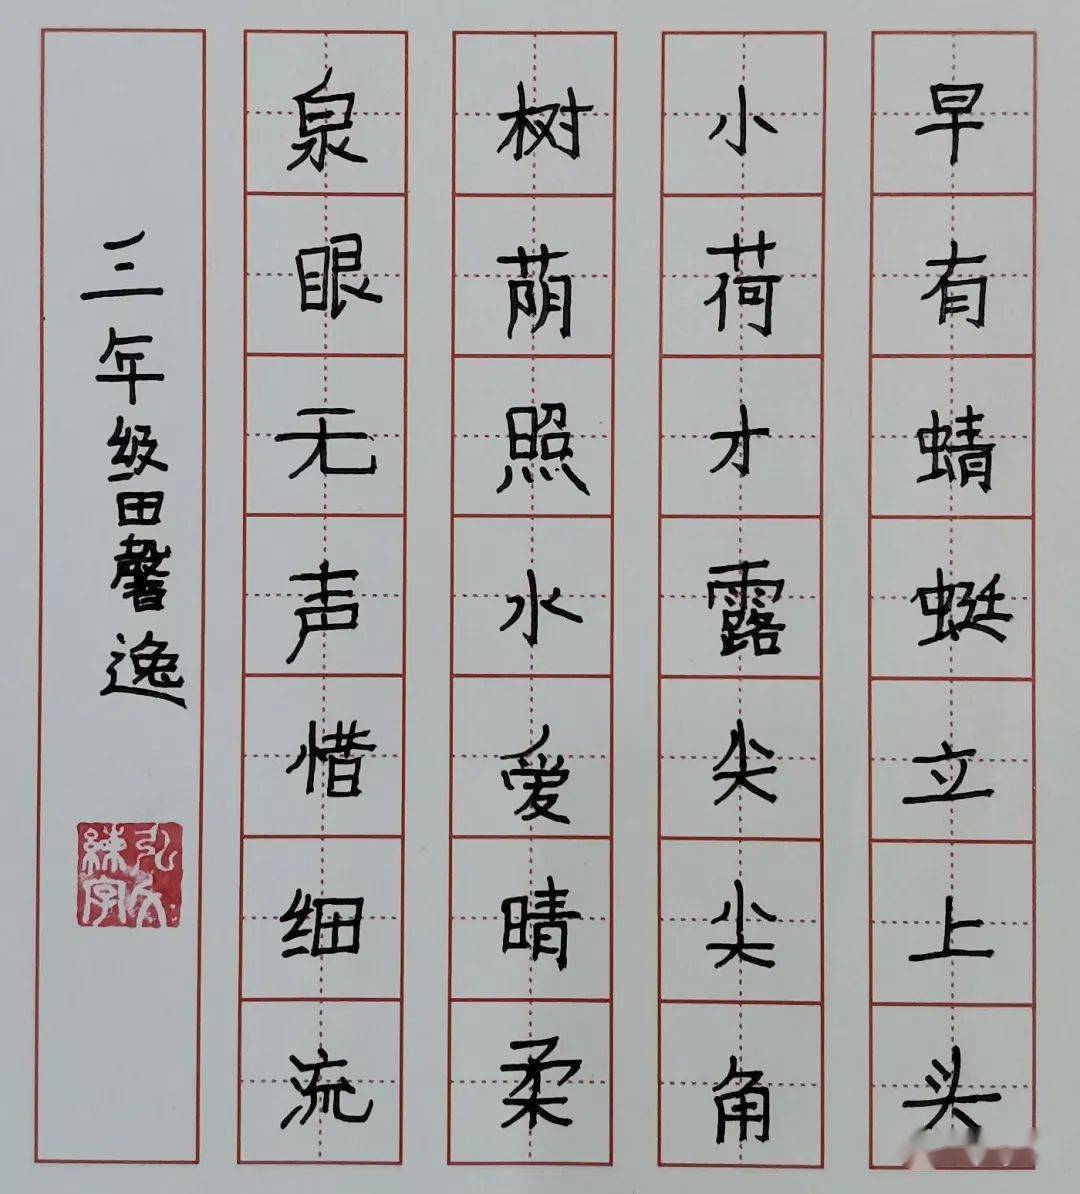 泉眼无声惜细流
树荫照水爱晴柔
小荷才露尖尖角
早有蜻蜓立上头
三年级田馨逸
弘文練字